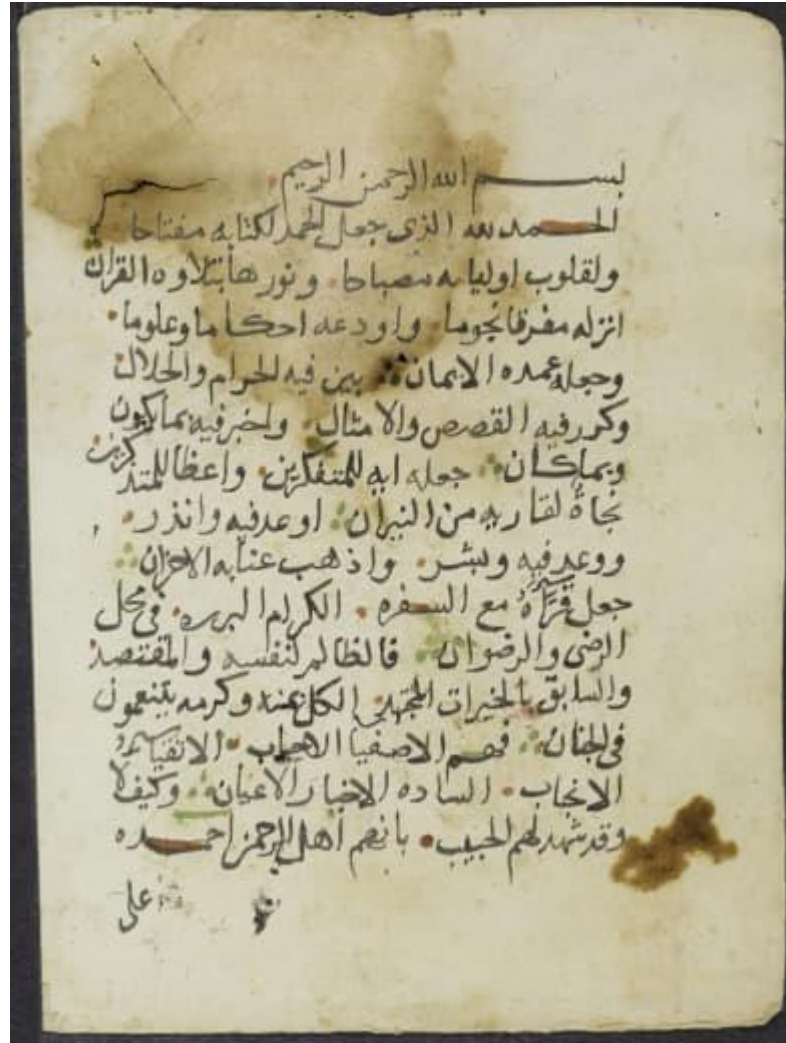 بسم الله الرحمن الرحيم
الحمد لله الذي جعل الحمد لكتابه مفتاحا
ولقلوب اوليايه مصباحا • ونورها بتلاوه القران
انزله مفرقا نجوما • واودعه احكاما وعلوما •
وجعله عمده الايمان ∴ بين فيه الحرام والحلال
وكرر فيه القصص والامثال • واخبر فيه بما يكون
وبما كان ∴ جعله ايه للمتفكرين • واعظا للمتذكرين •
نجاة لقاريه من النيران ∴ اوعد فيه وانذر •
ووعد فيه وبشر • واذهب عنا به الاحزان ∴
جعل قرآءه مع السفره • الكرام البرره • في محل
الرضى والرضوان ∴ فالظالم لنفسه والمقتصد
والسابق بالخيرات المجتهد • الكل عنده وكرمه يتنعمون
في الجنان ∴ فهم الاصفيا الاحباب • الاتقياء
الانجاب • الساده الاخيار الاعيان ∴ وكيف لا
وقد شهد لهم الحبيب • بانهم أهل الرحمن احمده
على